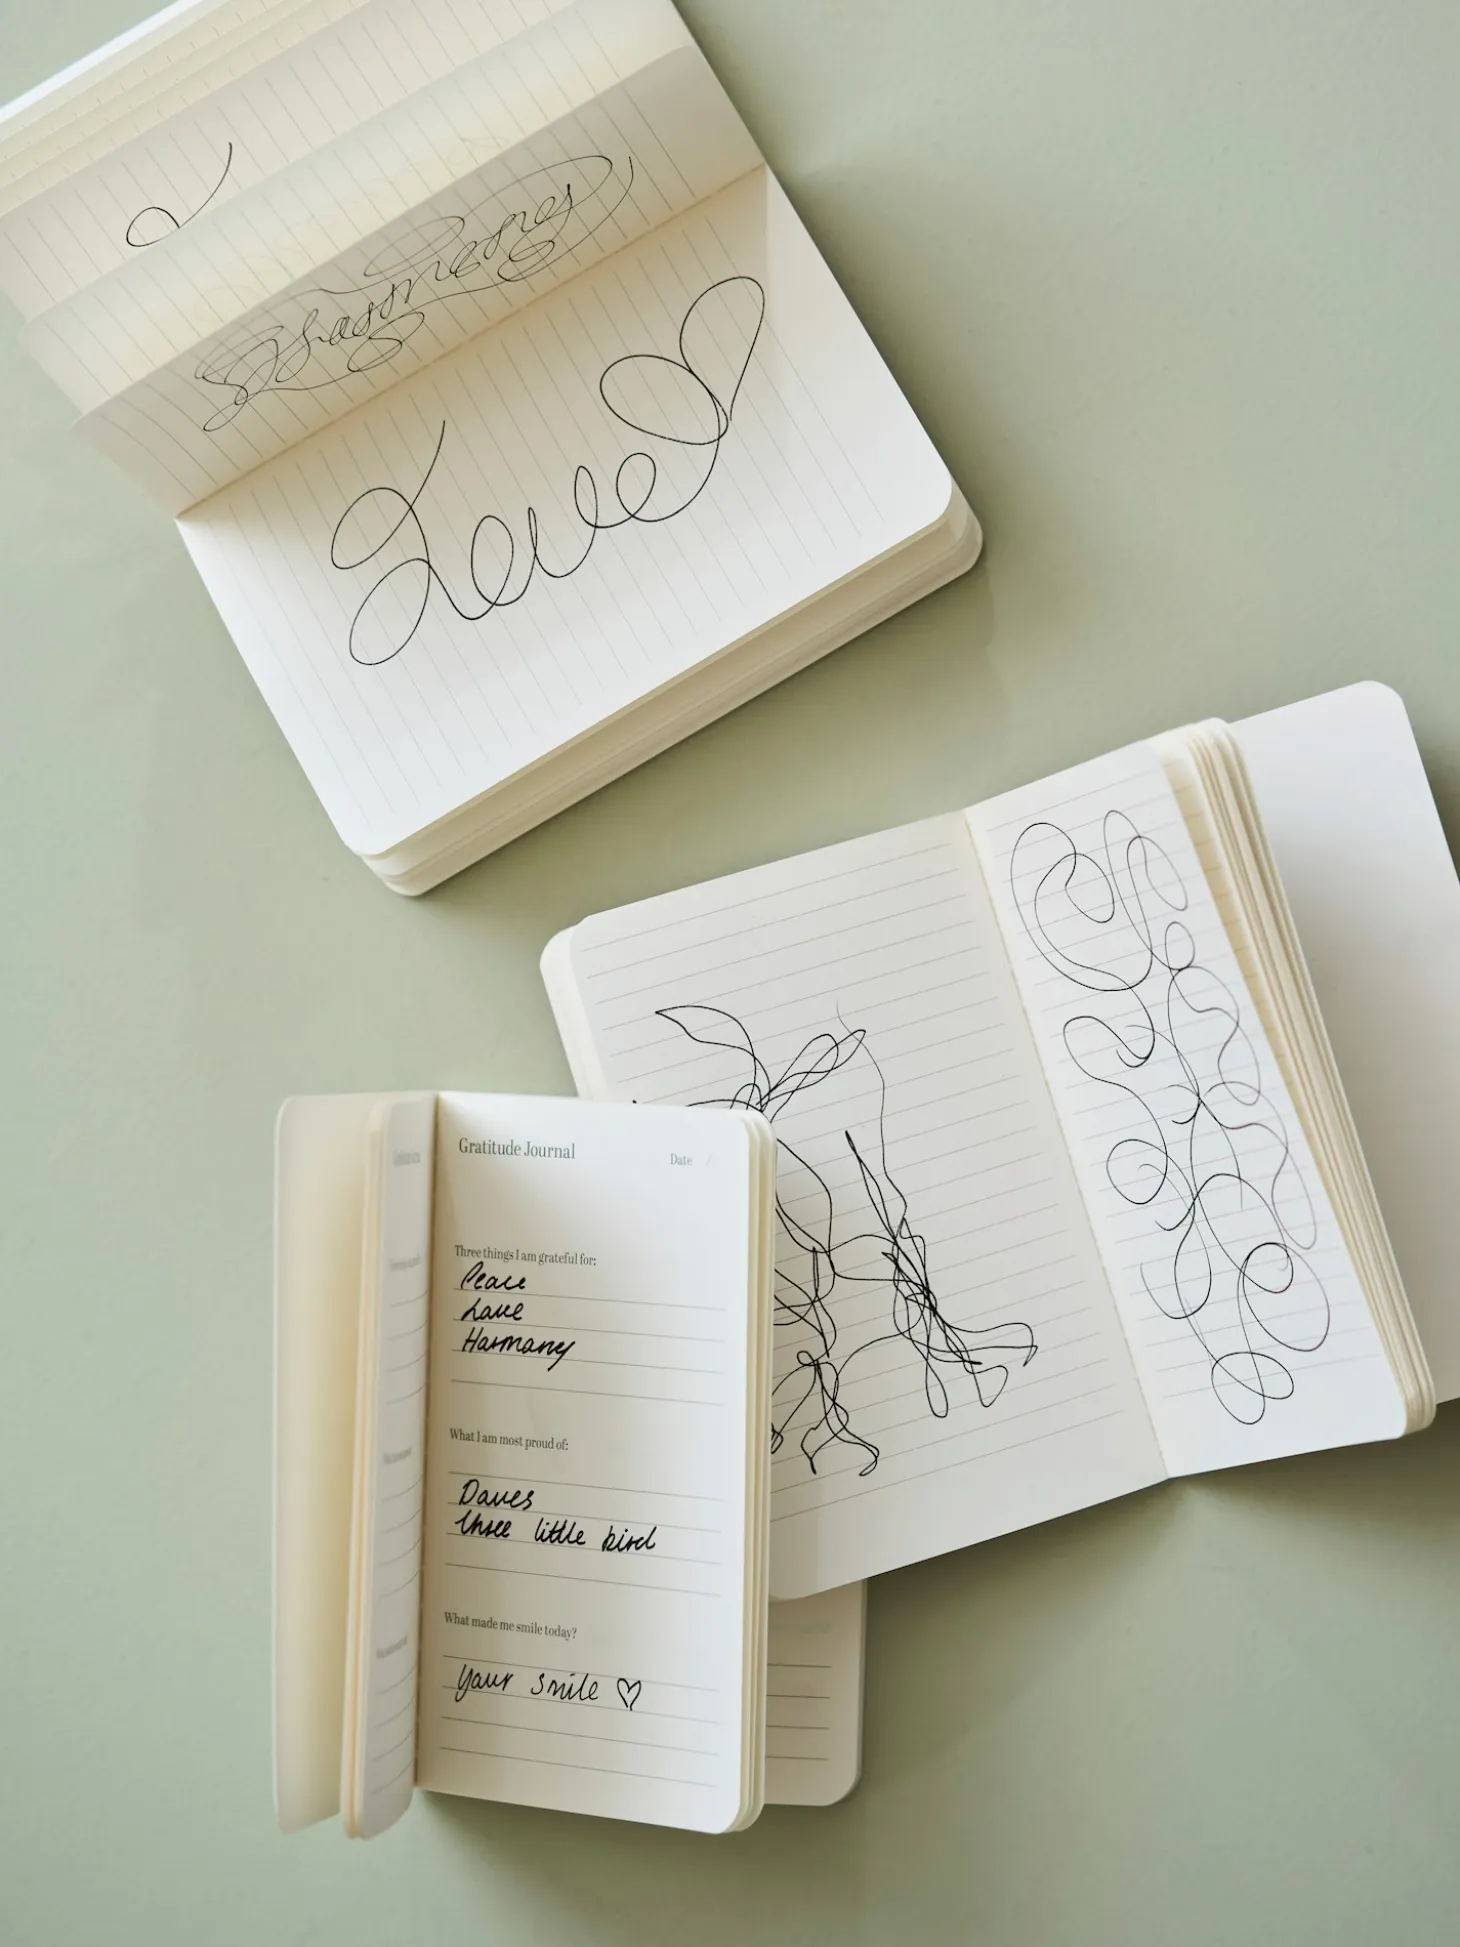 Love
Gratitude Journal
Date /
Three things I am grateful for:
Peace
Love
Harmony
What I am most proud of:
Daves
three little bird
What made me smile today?
your smile ♡